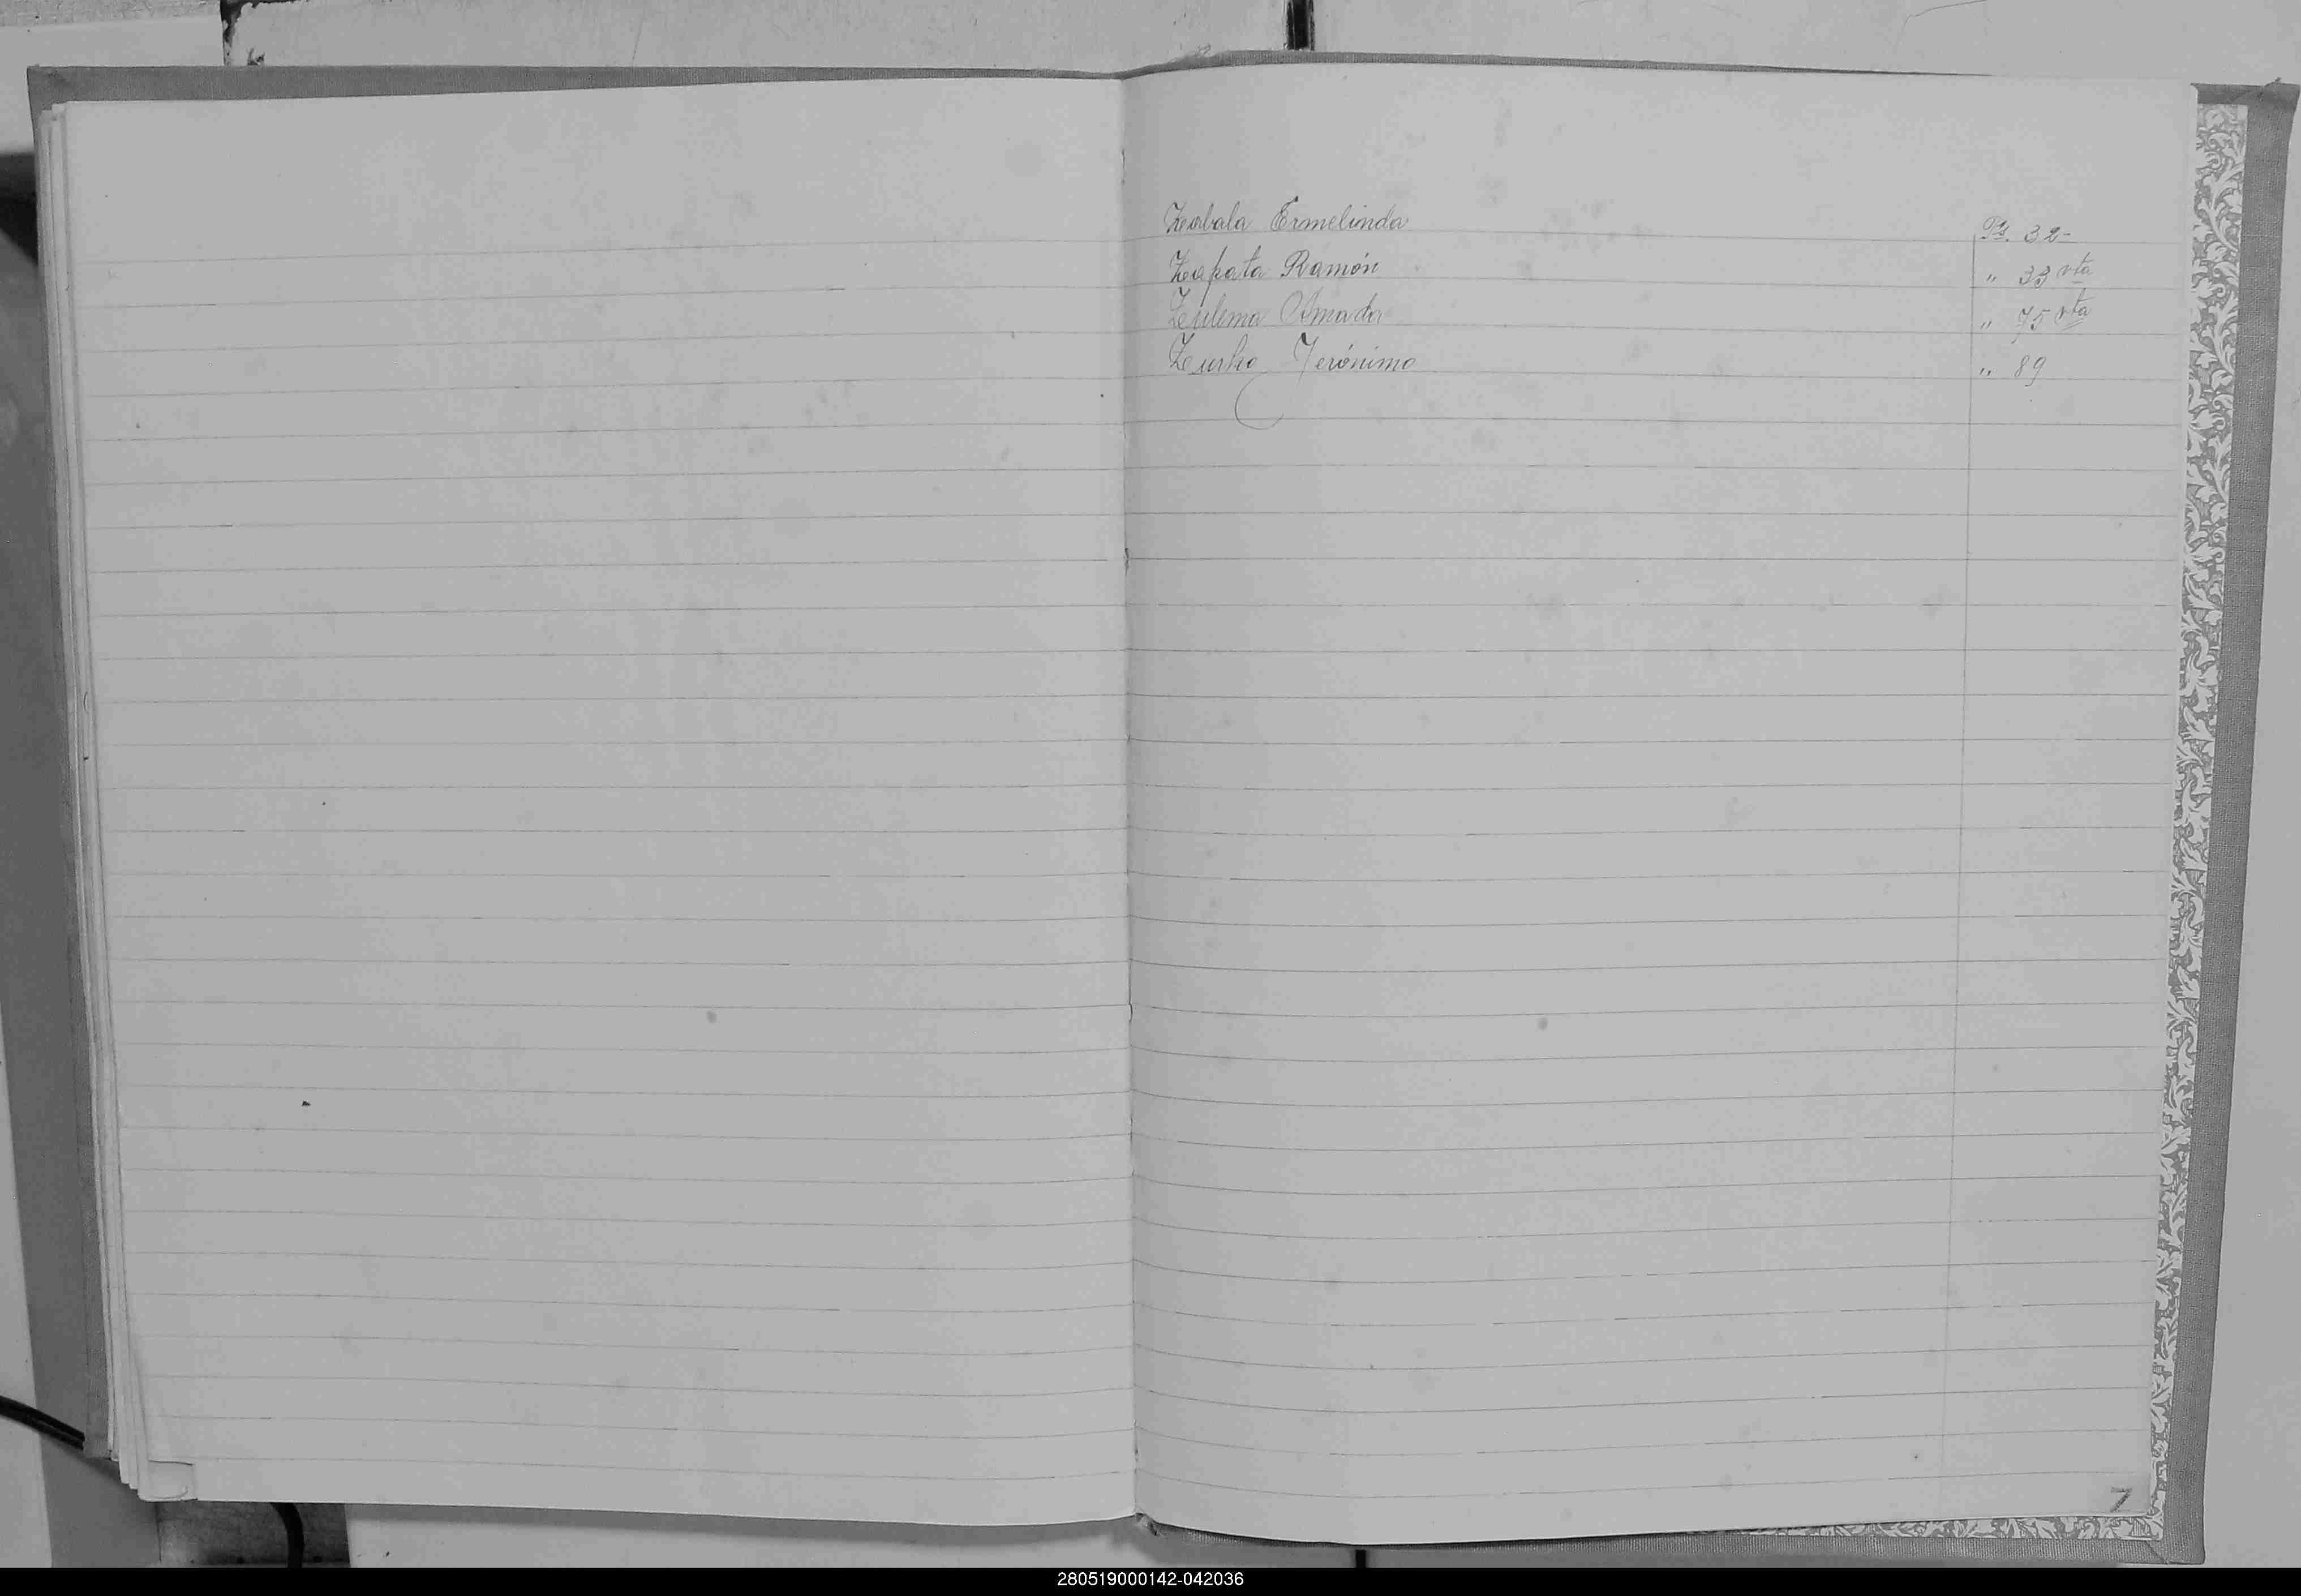 Zabala Ermelinda Pg. 32-
Zapata Ramón " 33 vta
Zulema Amada " 75 vta
Jerónimo " 89
Z
280519000142-042036